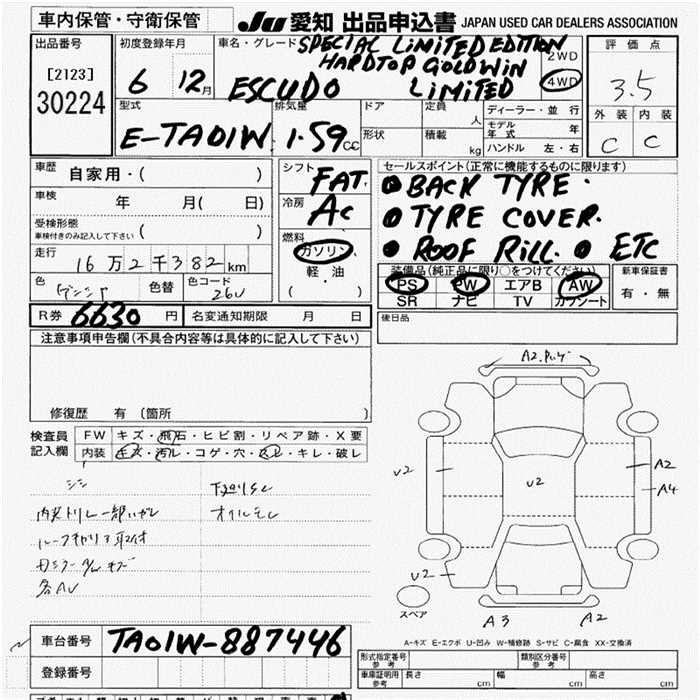 車内保管・守衛保管
JU 愛知 出品申込書 JAPAN USED CAR DEALERS ASSOCIATION
出品番号
[2123]
30224
初度登録年月
6 12月
車名・グレード SPECIAL LIMITED EDITION
HARDTOP GOLDWIN
ESCUDO LIMITED
2WD
4WD
評価点
3.5
外装 内装
C C
型式
E-TA01W
排気量
1.59cc
ドア 定員 人
形状 積載 kg
ディーラー・並行
モデル年式 年
ハンドル 左・右
車歴 自家用・( )
車検 年 月( 日)
受検形態
車検付きのみ記入して下さい ( )
走行 16万2千382km
色 色替 色コード
26U
シフト FAT.
冷房 AC
燃料
ガソリン
軽・油
( )
セールスポイント(正常に機能するものに限ります)
● BACK TYRE.
● TYRE COVER.
● ROOF RILL. ● ETC
装備品(純正品に限り○をつけてください)
PS PW エアB AW
SR ナビ TV カワシート
新車保証書
有・無
R券 6630 円 名変通知期限 月 日
後日品
注意事項申告欄(不具合内容等は具体的に記入して下さい)
修復歴 有 (箇所 )
検査員
記入欄
FW キズ・飛石・ヒビ割・リペア跡・X要
内装 キズ・汚レ・コゲ・穴・スレ・キレ・破レ
シミ 下廻りサビ
オイルモレ
A2
V2 V2 A2
A4
V2
スペア
A3 A2
A-キズ E-エクボ U-凹み W-補修跡 S-サビ C-腐食 XX-交換済
車台番号 TA01W-887446
登録番号
形式指定番号 参考 類別区分番号 参考
車庫証明用 参考 長さ cm 幅 cm 高さ cm